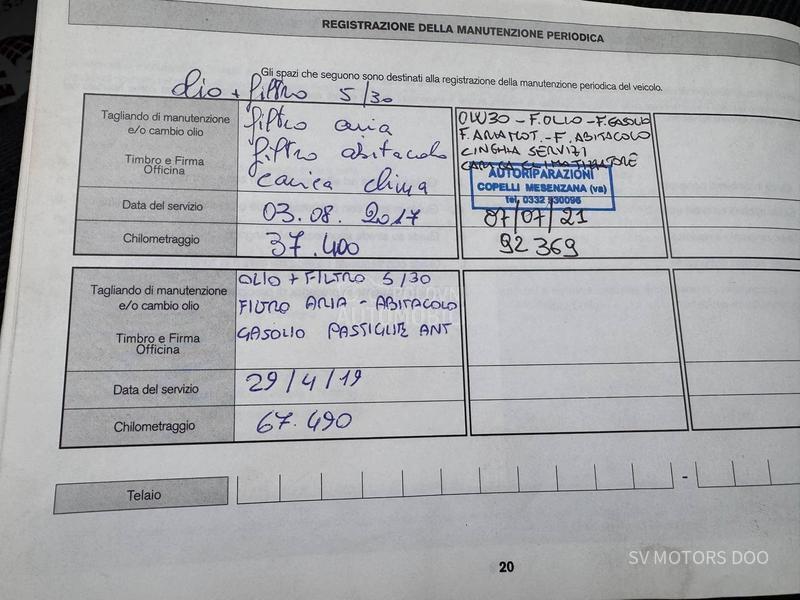 REGISTRAZIONE DELLA MANUTENZIONE PERIODICA
Gli spazi che seguono sono destinati alla registrazione della manutenzione periodica del veicolo.
olio + filtro 5/30
Tagliando di manutenzione
e/o cambio olio
Timbro e Firma
Officina
filtro aria
filtro abitacolo
carica clima
Data del servizio
03.08.2017
Chilometraggio
37.400
OW30 - F.OLIO - F.GASOLIO
F.ARIA MOT. - F. ABITACOLO
CINGHIA SERVIZI
CARICA CLIMATIZZATORE
AUTORIPARAZIONI
COPELLI MESENZANA (va)
tel. 0332 530096
07/07/21
92369
Tagliando di manutenzione
e/o cambio olio
Timbro e Firma
Officina
OLIO + FILTRO 5/30
FILTRO ARIA - ABITACOLO
GASOLIO PASTIGLIE ANT
Data del servizio
29/4/19
Chilometraggio
67.490
Telaio
-
20
SV MOTORS DOO